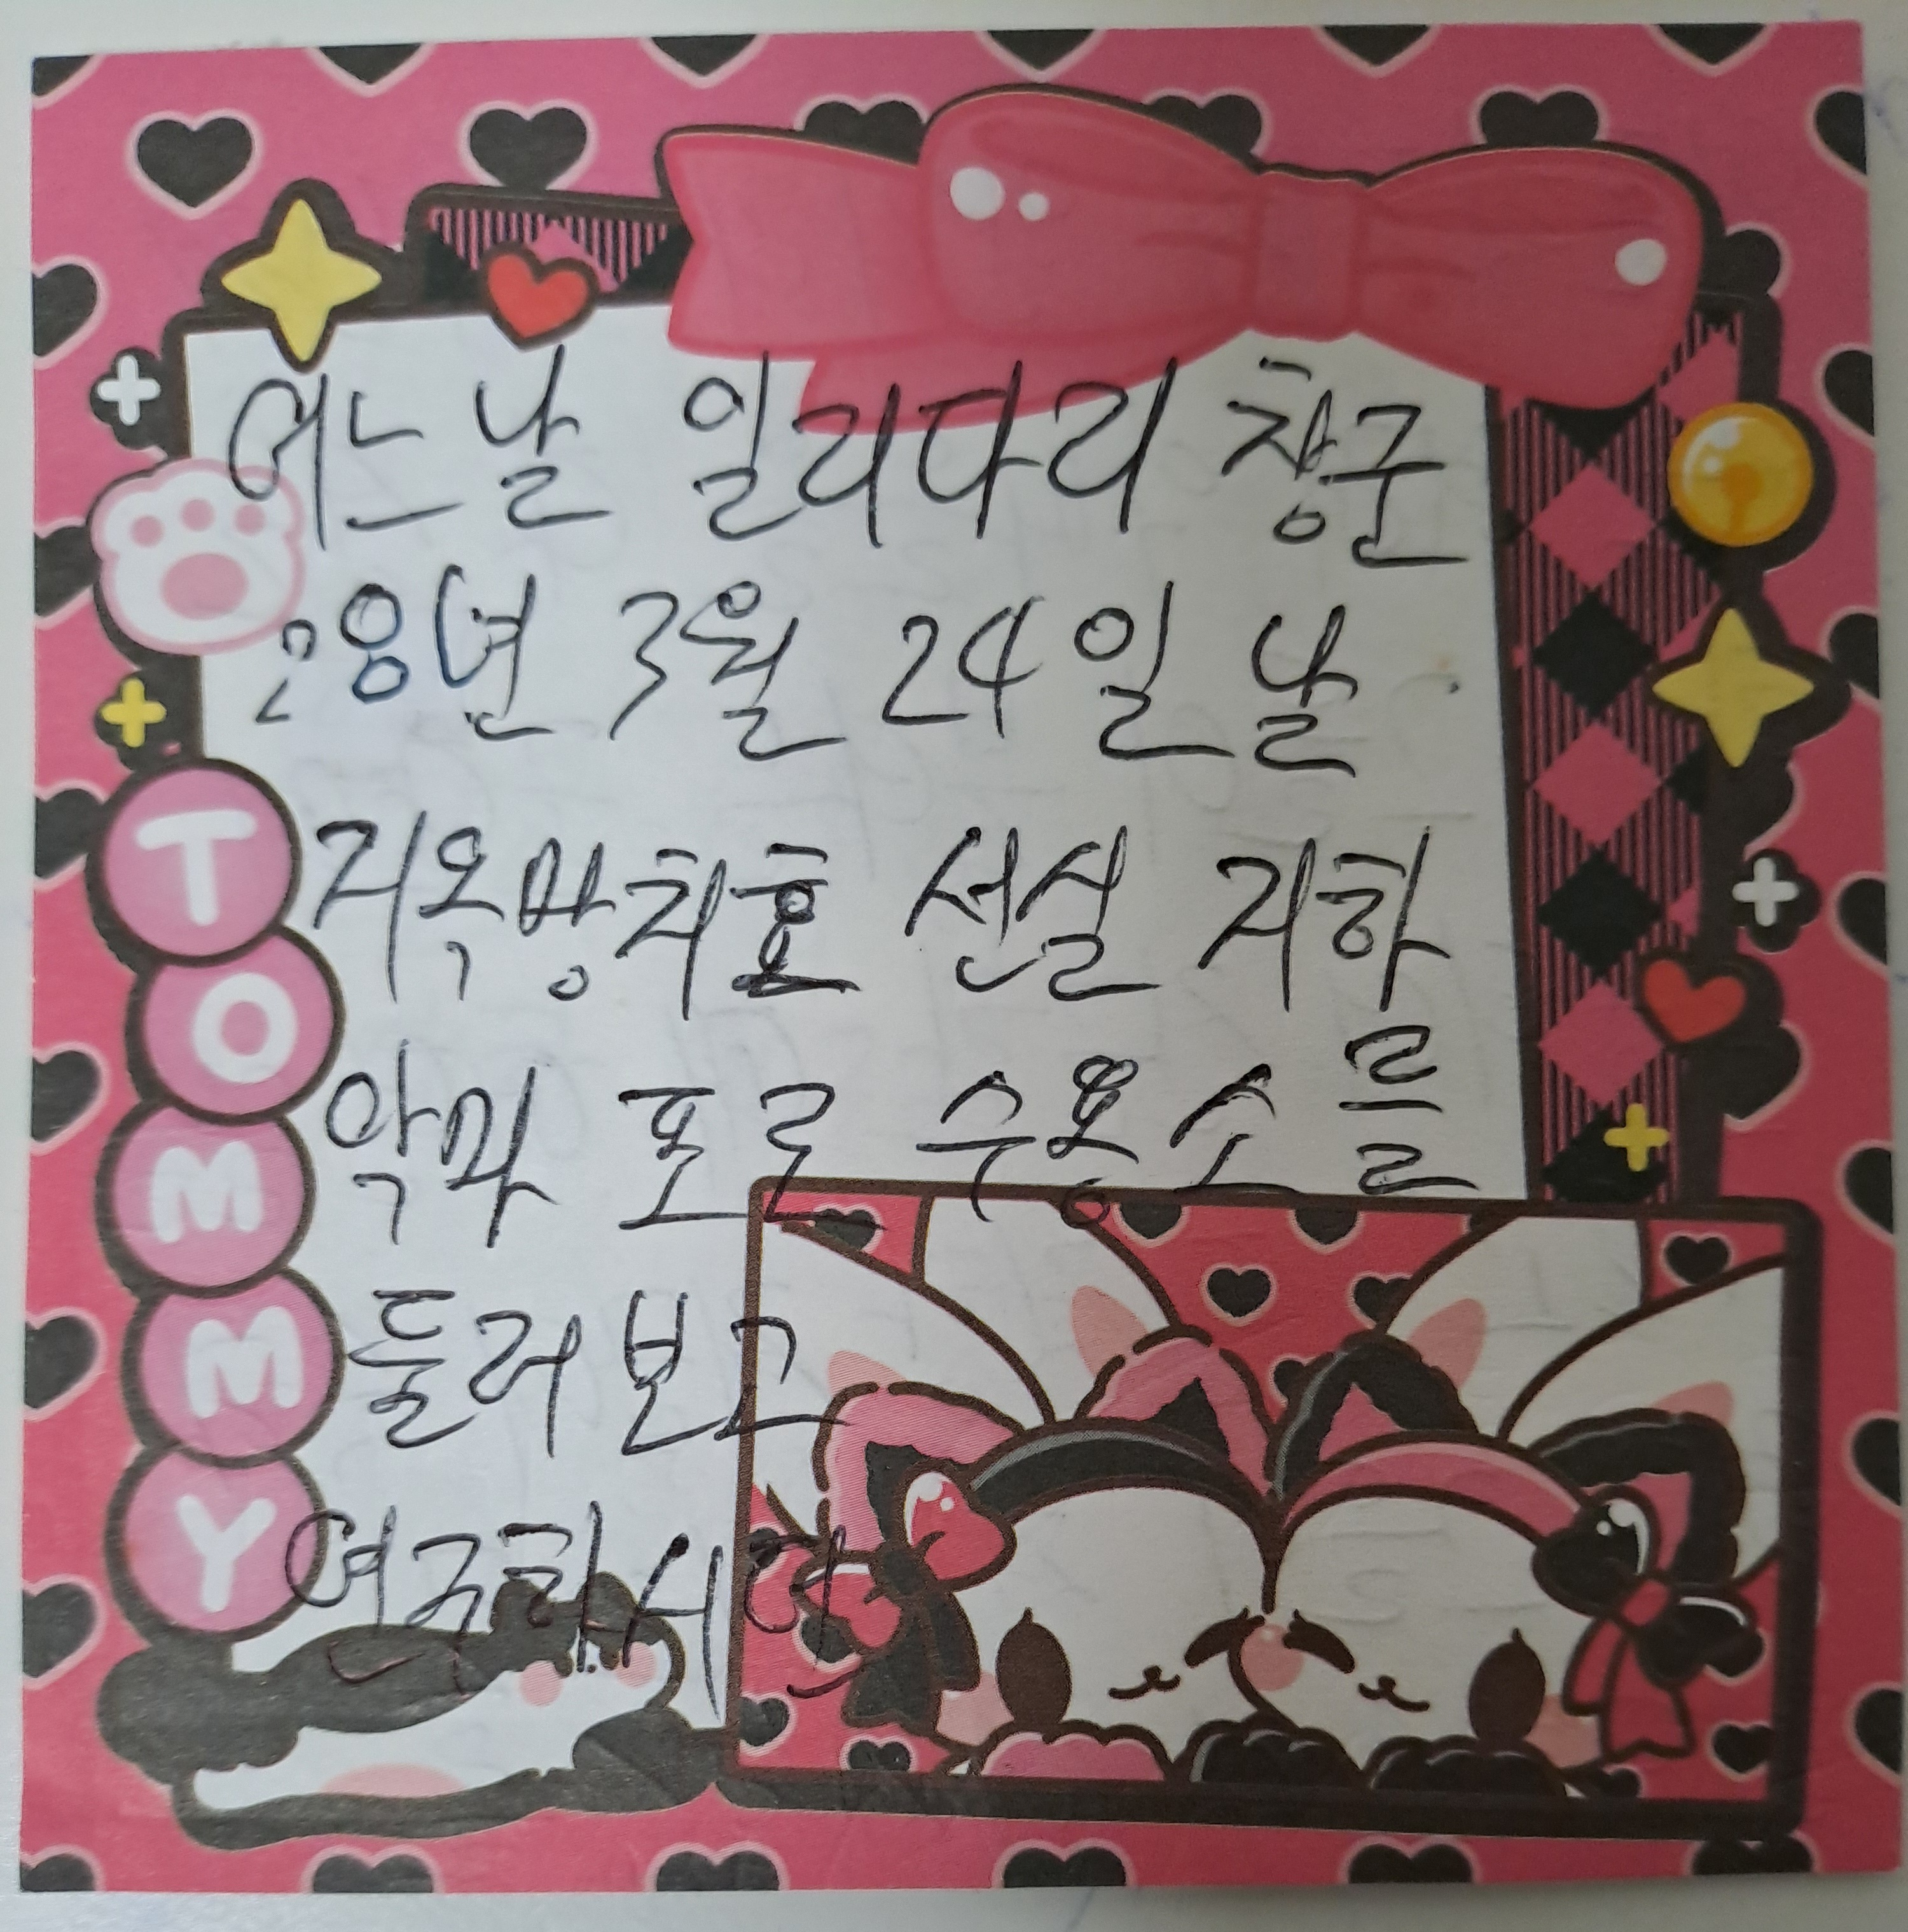 어느날 일리다리 창군
28년 3월 24일 날
지옥망치호 선실 지하
악마 포로 수용소를
둘러보고
연구하시며
TOMMY